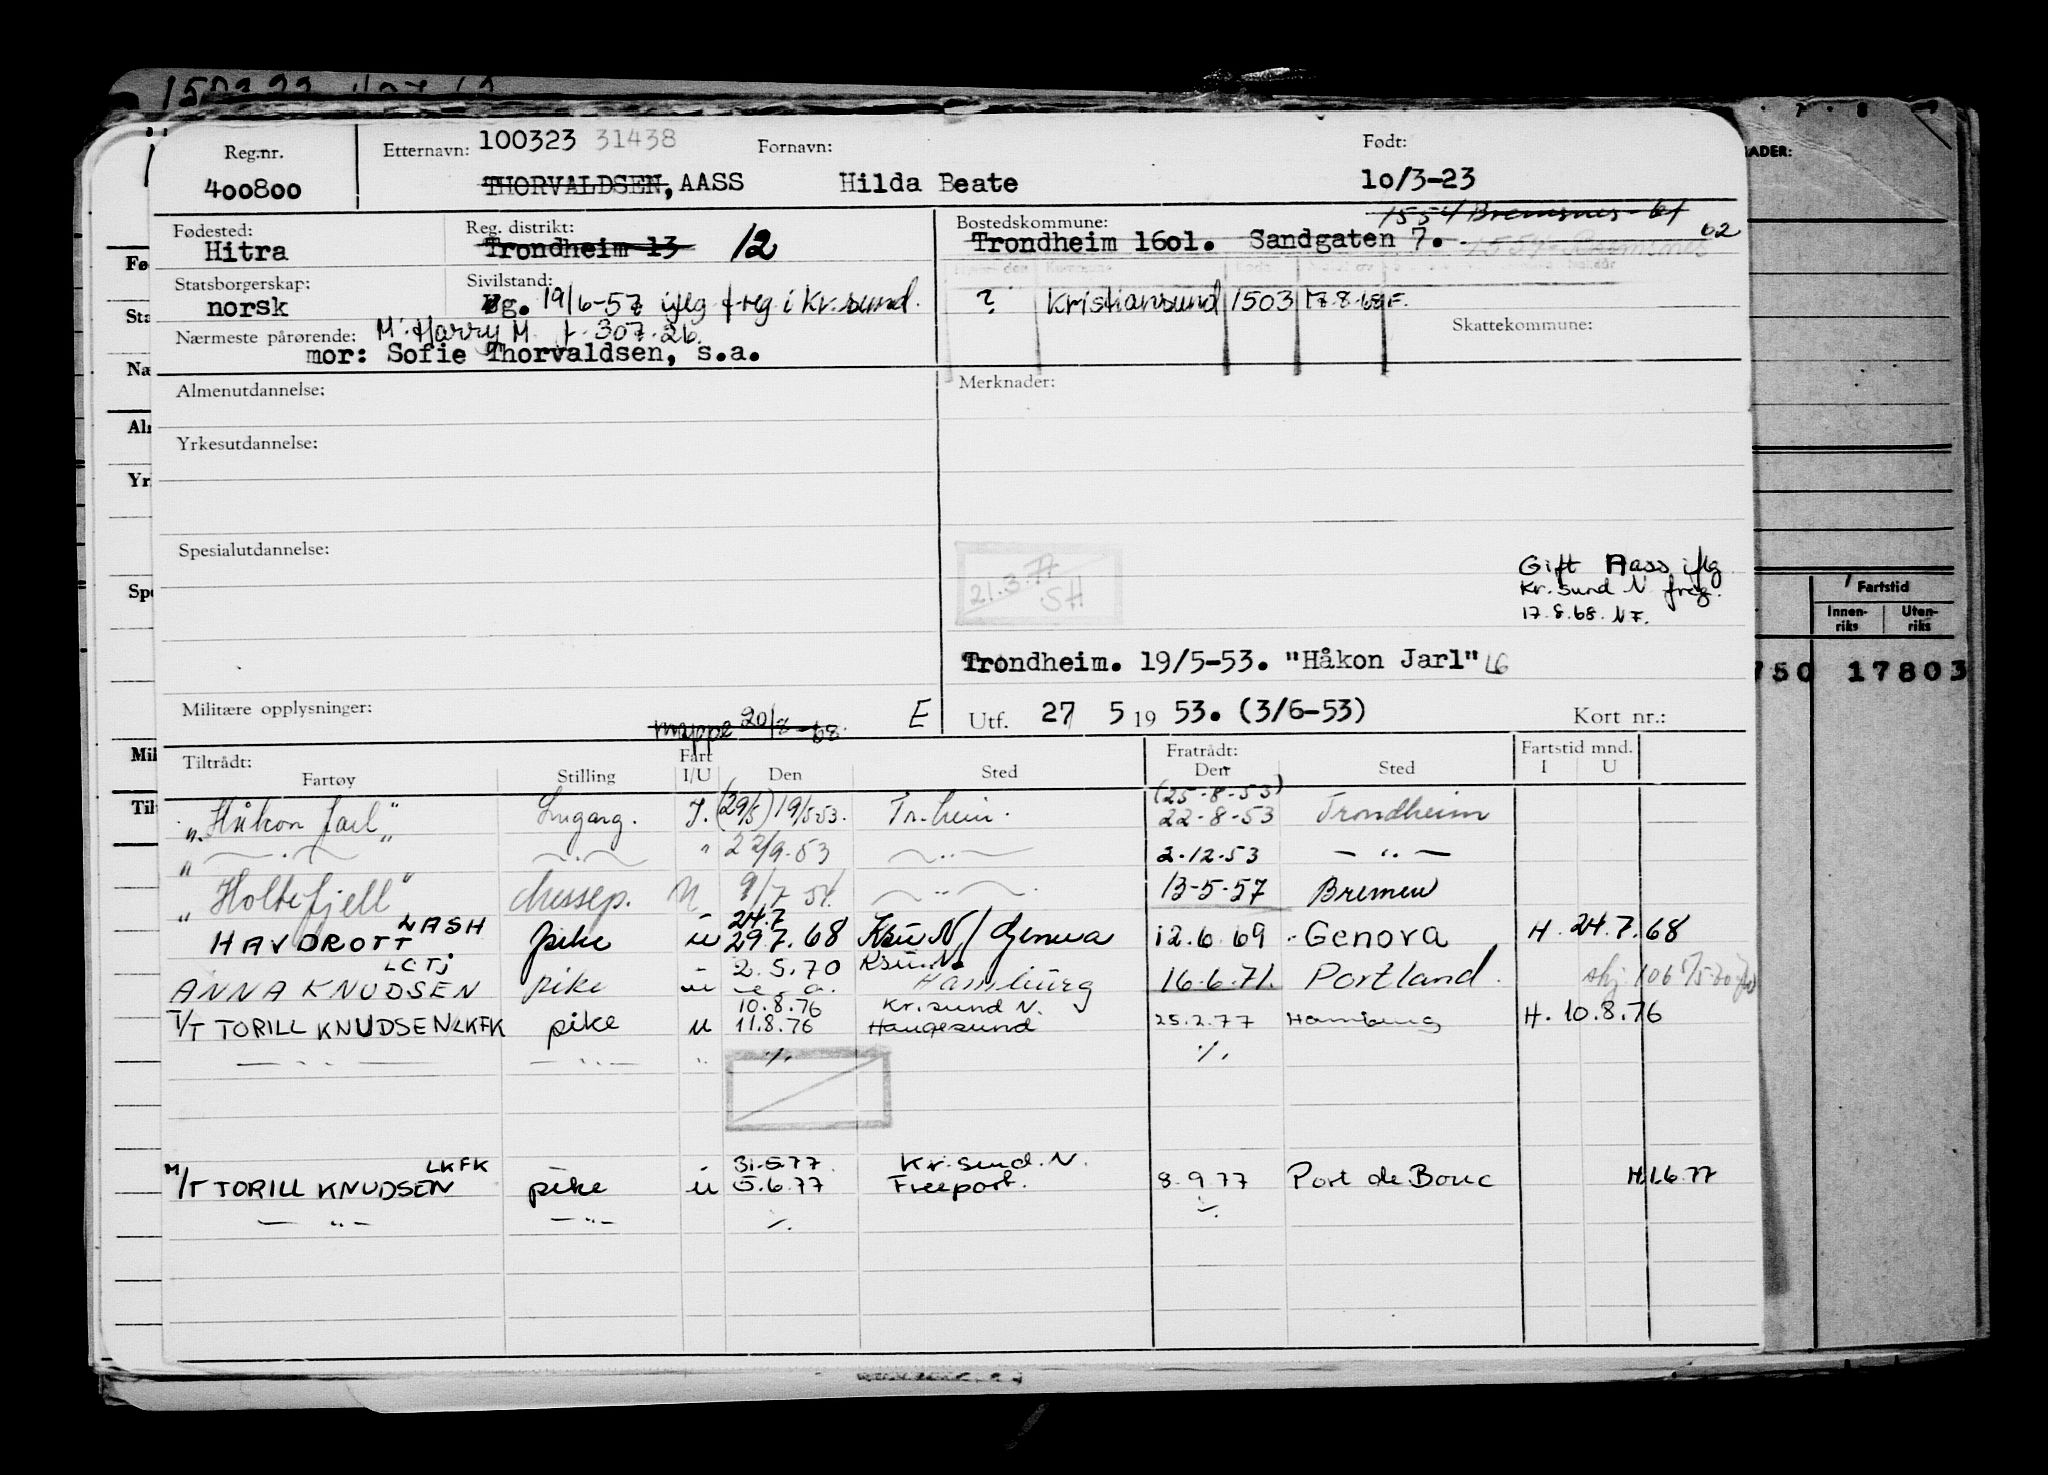 Reg.nr. Etternavn: 100323 31438 Fornavn: Født:
400800 THORVALDSEN, AASS Hilda Beate 10/3-23
Fødested: Reg. distrikt: Bostedskommune: 1554 Bremsnes
Hitra Trondheim 13 12 Trondheim 1601. Sandgaten 7. 1554 Bremsnes 62
Statsborgerskap: Sivilstand:
norsk g. 19/6-57 iflg freg i Kr.sund. ? Kristiansund 1503 17.8.68
Nærmeste pårørende: M: Harry M. f. 307.26. Skattekommune:
mor: Sofie Thorvaldsen, s.a.
Almenutdannelse: Merknader:
Yrkesutdannelse:
Spesialutdannelse:
21.3.77
SH
Gift Aass iflg
Kr.sund N freg.
17.8.68. NF.
Trondheim. 19/5-53. "Håkon Jarl" LG
Militære opplysninger: mappe 20/8-68 E Utf. 27 5 19 53. (3/6-53) Kort nr.:
Tiltrådt: Fart Fratrådt: Fartstid mnd.
Fartøy Stilling I/U Den Sted Den Sted I U
(25-8-53)
"Håkon Jarl" Lugarg. I. (29/5) 19/5 53. Tr.heim. 22-8-53 Trondheim
" 22/9.53 2.12.53 — " —
"Holtefjell" Messep. U 9/7 54. 13-5-57 Bremen
LASH 24.7
HAVDROTT pike u 29.7.68 Ksu N/ Genova 12.6.69 Genova H. 24.7.68
LCTJ 2.5.70 Ksu. N.
ANNA KNUDSEN pike u Hamburg 16.6.71. Portland
10.8.76 Kr.sund N.
T/T TORILL KNUDSEN LKFK pike u 11.8.76 Haugesund 25.2.77 Hamburg H. 10.8.76
— " — — " — " ./. ./.
LKFK 31.5.77. Kr.sund.N.
M/T TORILL KNUDSEN pike u 5.6.77 Freeport. 8.9.77 Port de Bouc H.1.6.77
— " — — " — ./. ./.
ADER:
Fartstid
Innen-
riks
Uten-
riks
750 17803
Fø
Sta
Næ
Aln
Yr
Spe
Mil
Til